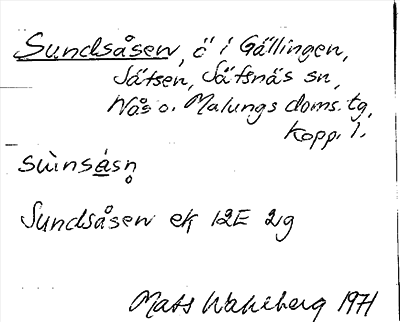 Sundsåsen, ö i Gällingen,
Jätsen, Säfsnäs sn,
Nås o. Malungs doms. tg,
Kopp. l.
sùnsåsn̥
Sundsåsen ek 12E 2g
Mats Wahlberg 1971